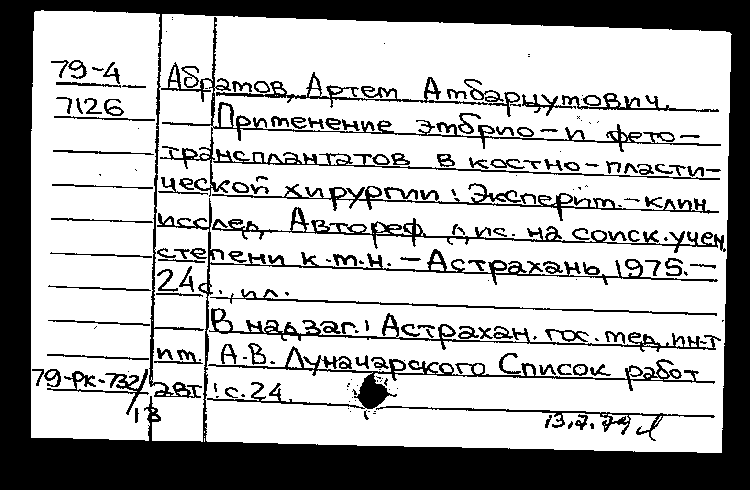 79-4 Абратов, Артем Амбарцумович.
7126 Применение эмбрио- и фето-
трансплантатов в костно-пласти-
ческой хирургии: Эксперим.-клин.
исслед. Автореф. дис. на соиск. учен.
степени к.м.н. - Астрахань, 1975.-
24 с., ил.
В надзаг.: Астрахан. гос. мед. ин-т
им. А.В. Луначарского Список работ
79-РК-732/13 авт.: с. 24.
13.7.79